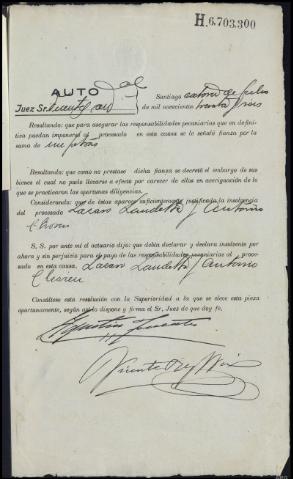 H.6.703.300
AUTO
Juez Sr.
Santiago catorce de Julio
de mil novecientos treinta y seis
Resultando: que para asegurar las responsabilidades pecuniarias que en defini-
tiva puedan imponerse al procesado en esta causa se le señaló fianza por la
suma de mil ptas
Resultando: que como no prestase dicha fianza se decretó el embargo de sus
bienes el cual no pudo llevarse a efecto por carecer de ellos en averiguación de lo que
se practicaron las oportunas diligencias.
Considerando: que de éstas aparece suficientemente justificada la insolvencia
del procesado y Antonio
S. S. por ante mi el actuario dijo: que debía declarar y declara insolvente por
ahora y sin perjuicio para el pago de las responsabilidades pecuniarias al proce-
sado en esta causa, y Antonio
Consúltese esta resolución con la Superioridad a la que se eleve esta pieza
oportunamente, según así lo dispone y firma el Sr. Juez de que doy fe.
Vicente Rey